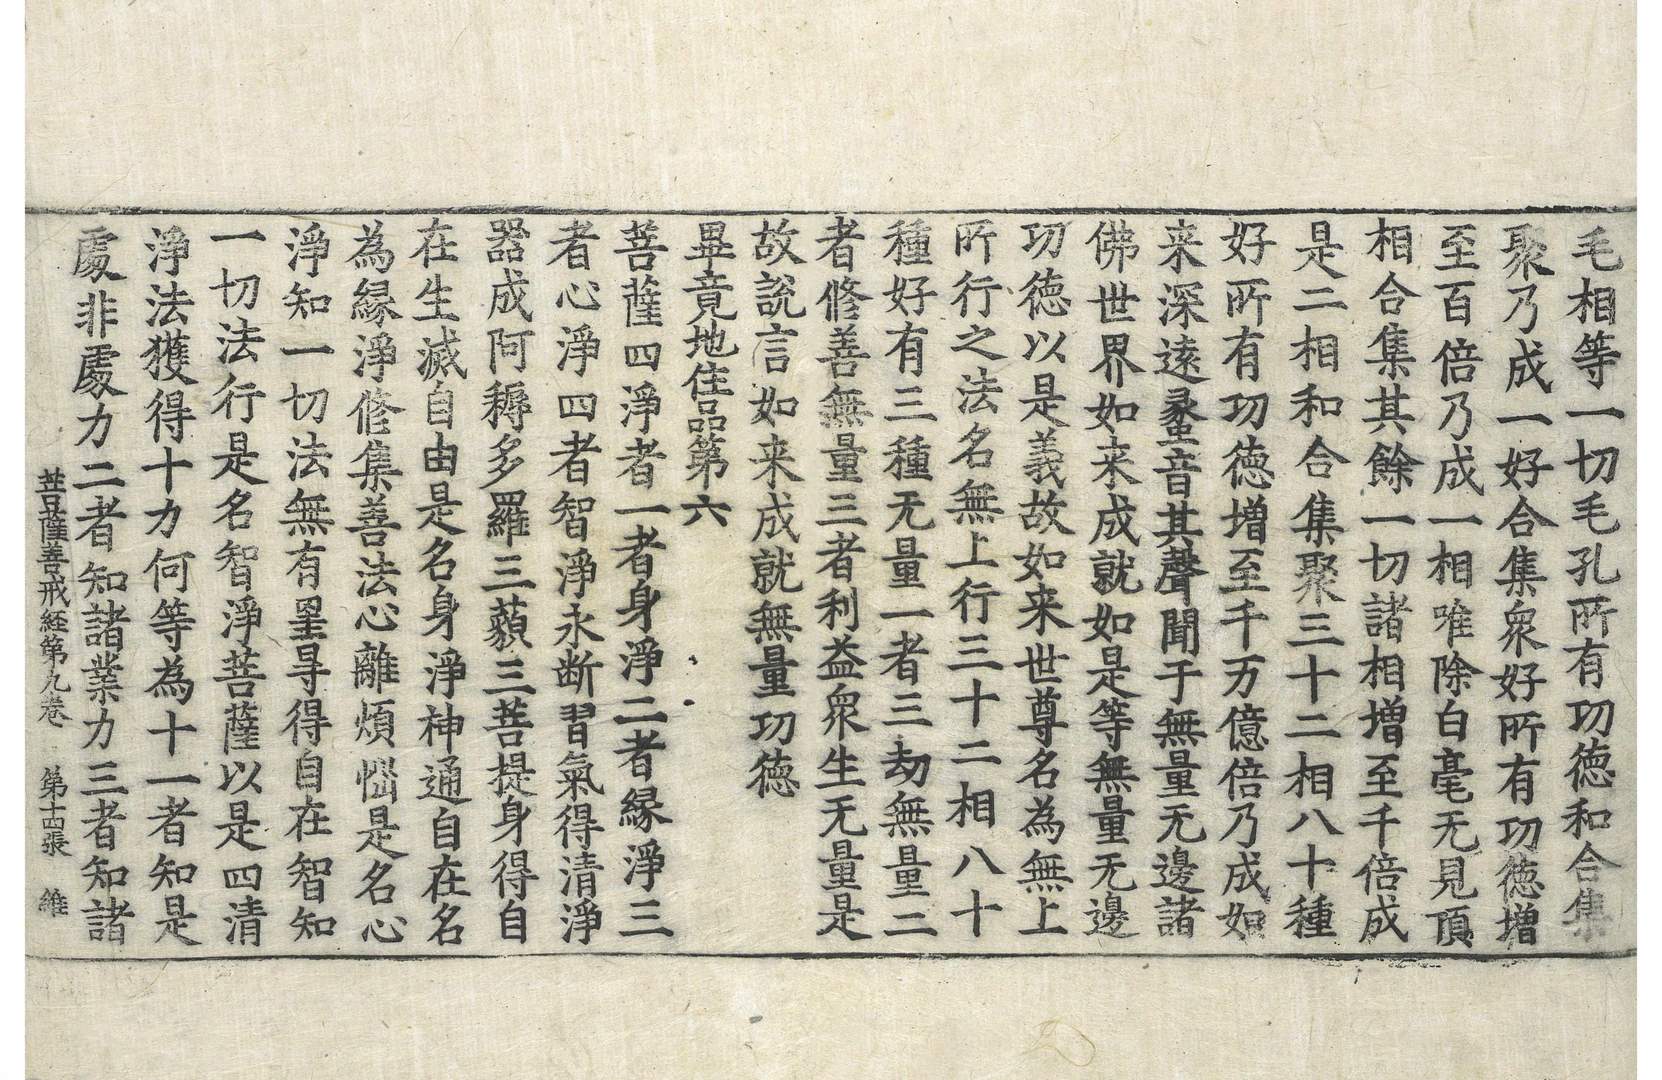 毛相等一切毛孔所有功徳和合集
聚乃成一好合集衆好所有功徳増
至百倍乃成一相唯除白毫无見頂
相合集其餘一切諸相増至千倍成
是二相和合集聚三十二相八十種
好所有功徳増至千万億倍乃成如
来深遠䗍音其聲聞于無量无邊諸
佛世界如来成就如是等無量无邊
功徳以是義故如来世尊名為無上
所行之法名無上行三十二相八十
種好有三種无量一者三劫無量二
者修善無量三者利益衆生无量是
故說言如来成就無量功徳
畢竟地住品第六
菩薩四淨者一者身淨二者縁淨三
者心淨四者智淨永断習氣得清淨
器成阿耨多羅三藐三菩提身得自
在生滅自由是名身淨神通自在名
為縁淨修集善法心離煩惱是名心
淨知一切法無有罣㝵得自在智知
一切法行是名智淨菩薩以是四清
淨法獲得十力何等為十一者知是
處非處力二者知諸業力三者知諸
菩薩善戒経第九卷　第十四張　維